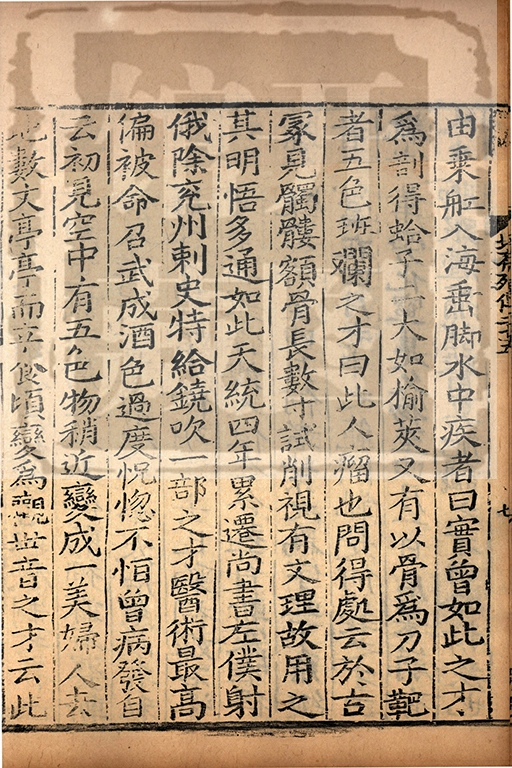 由乗舡入海垂脚水中疾者曰實曾如此之才
為剖得蛤子二大如榆莢又有以骨為刀子靶
者五色班斕之才曰此人瘤也問得處云於古
冡見髑髏額骨長數寸試削視有文理故用之
其明悟多通如此天統四年累遷尚書左僕射
俄除兖州刺史特給鐃吹一部之才醫術最高
偏被命召武成酒色過度怳惚不恒曾病發自
云初見空中有五色物稍近變成一美婦人去
地數丈亭亭而立食頃變為觀世音之才云此
北齊列傳二十五
七